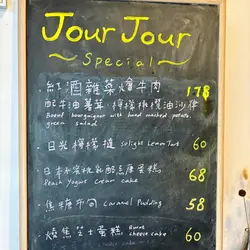 Jour Jour
~ Special ~
· 紅酒雜菜燴牛肉 178
配牛油薯蓉 檸檬橄欖油沙律
Boeuf bourguignon with hand mashed potato,
green salad
· 日光檸檬撻 sulight Lemon Tart 60
· 日本水蜜桃乳酪忌廉蛋糕 68
Peach Yogurt cream cake
· 焦糖布甸 Caramel Pudding 58
· 燒焦芝士蛋糕 Burnt 60
cheese cake